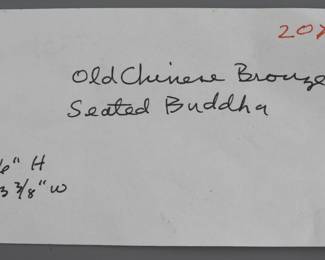 Old Chinese Bronze
Seated Buddha
6" H
3 3/8" W